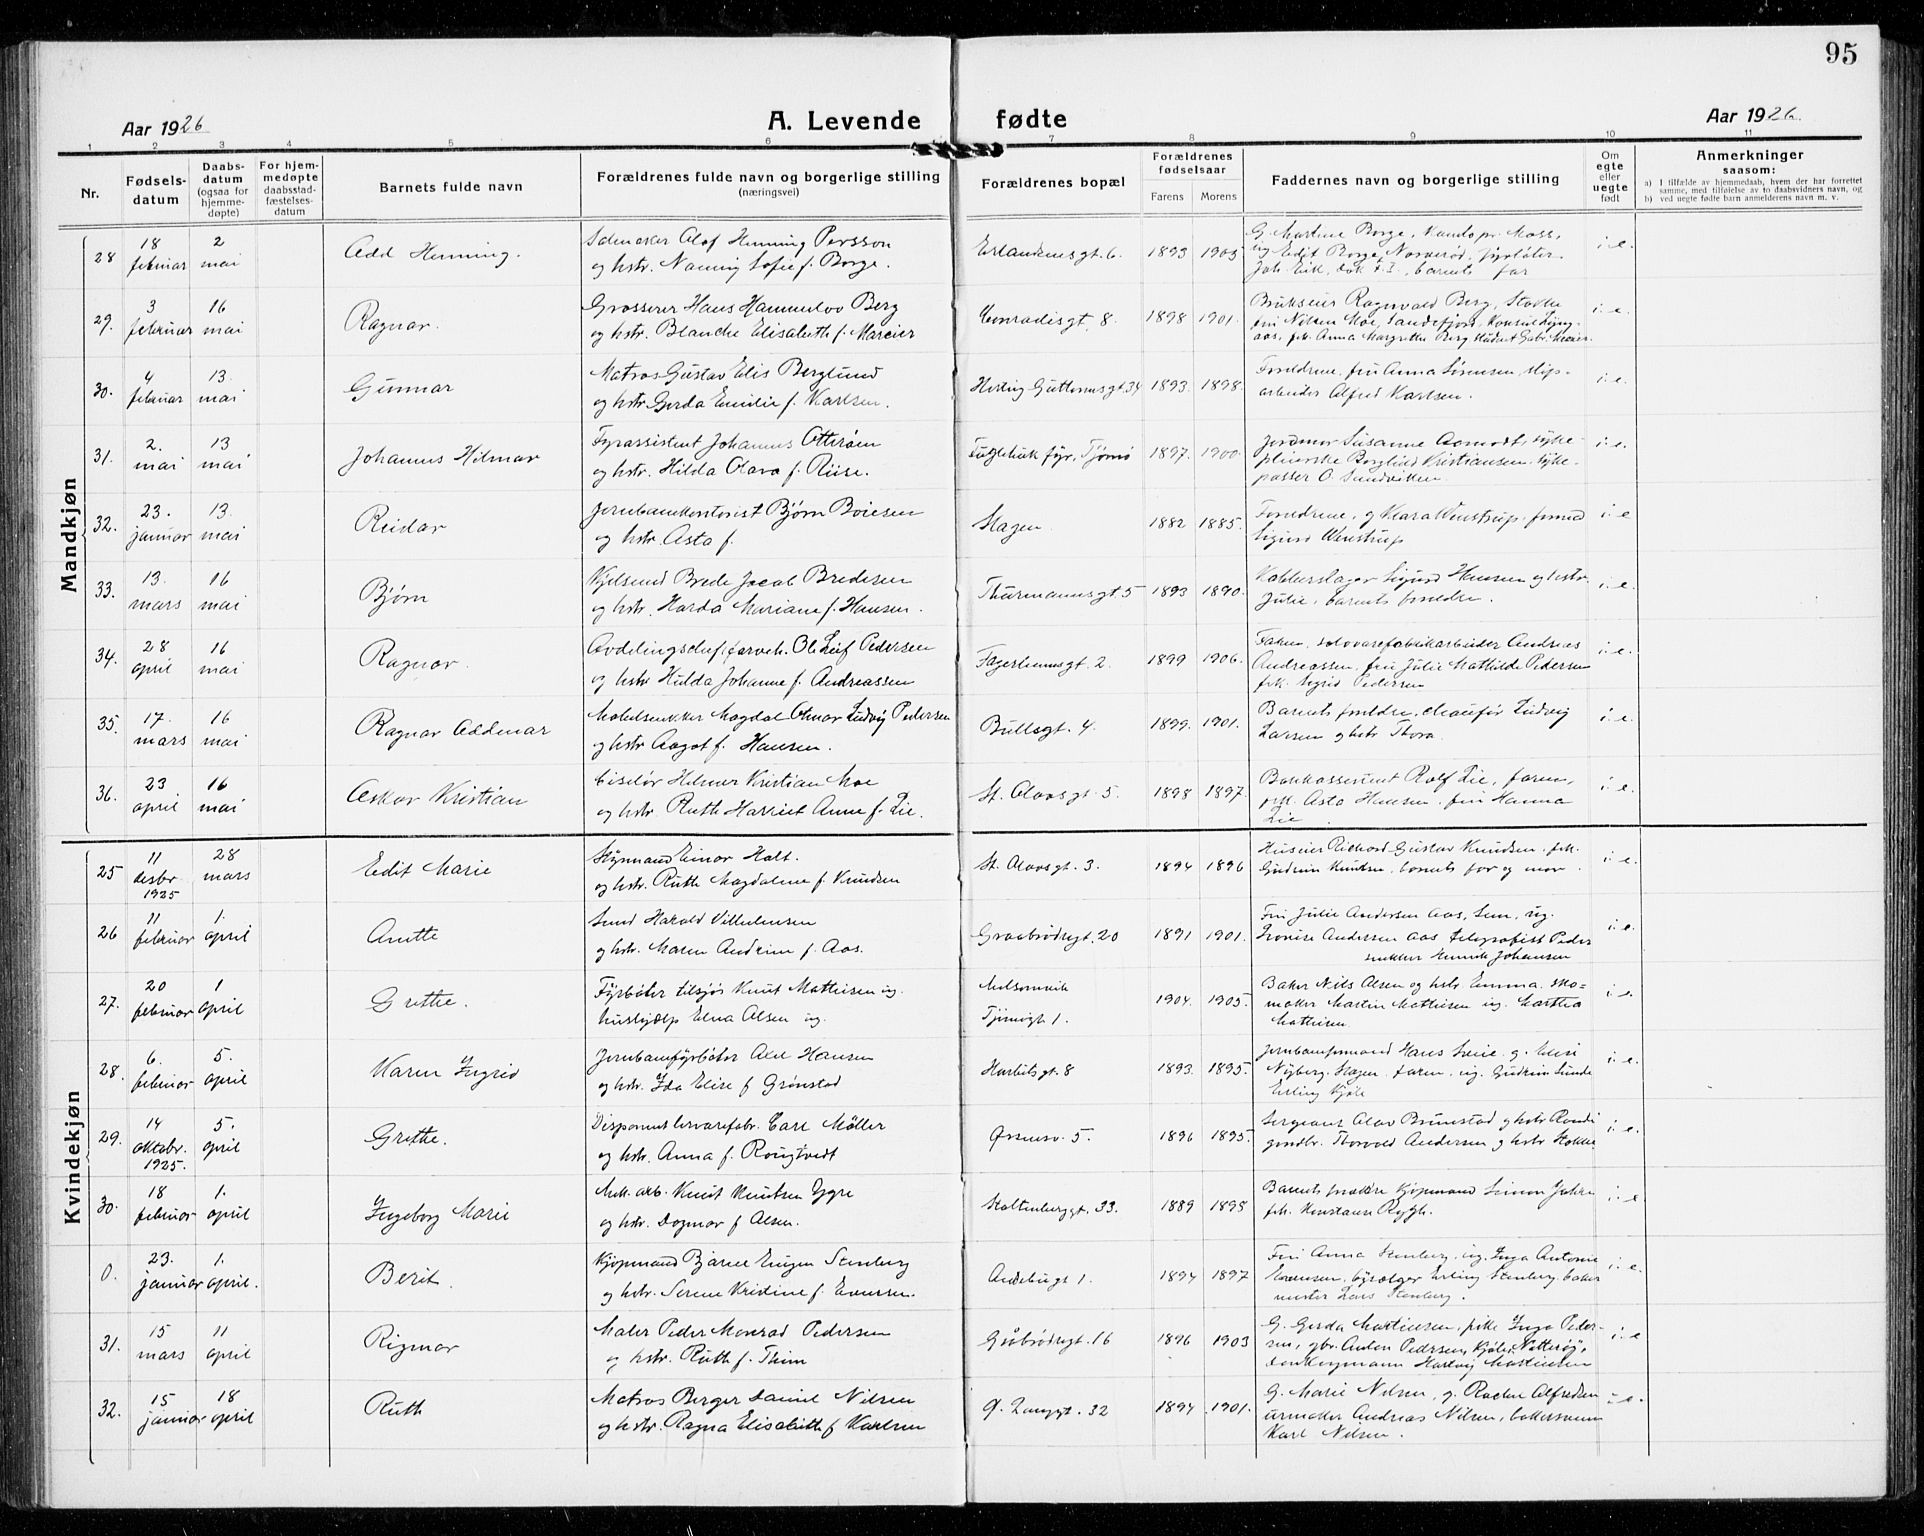 95
Aar 1926
A. Levende fødte
Aar 1926.
1 2 3 4 5 6 7 8 9 10 11
Nr.
Fødsels-
datum
Daabs-
datum
(ogsaa for
hjemme-
døpte)
For hjem-
medøpte
daabsstad-
fæstelses-
datum
Barnets fulde navn
Forældrenes fulde navn og borgerlige stilling
(næringsvei)
Forældrenes bopæl
Forældrenes
fødselsaar
Farens Morens
Faddernes navn og borgerlige stilling
Om
egte
eller
uegte
født
Anmerkninger
saasom:
a) I tilfælde av hjemmedaab, hvem der har forrettet
samme, med tilføielse av to daabsvidners navn, og
b) ved uegte fødte barn anmelderens navn m. v.
Mandkjøn
28 18 februar 2 mai Odd Henning.
Olof Henning Persson
og hstr. Nanny Sofie f. Borge.
Erlandsensgt. 6. 1893 1903
G. Martine Borge,
og Edit Borge, fyrbøter
barnets far
i. e.
29. 3 februar 16 mai Ragnar.
Grosserer Hans Hammelov Berg
og hstr. Blanche Elisabeth f. Mercier
Conradisgt. 8. 1898 1901.
Brukseier Ragnvald Berg, Stokke
fru Nelsen Moe, Sandefjord, Konsul
frk. Anna Margrethe Berg student Gabr. Meier.
i. e.
30. 4 februar 13. mai Gunnar
Matros Gustav Elis Berglund
og hstr. Gerda Emilie f. Karlsen.
Hertug Guttormsgt. 34 1893. 1898.
Forældrene, fru Anna Sørensen slip-
arbeider Alfred Karlsen.
i. e.
31. 2. mai 13 mai Johannes Hilmar
Fyrassistent Johannes Otterøen
og hstr. Hilda Olava f. Riise.
Fuglehuk fyr, Tjømø 1897. 1900.
Jordmor Susanne Aamodt, syke-
pleierske Borghild Kristiansen, syke-
passer O. Sundvikken.
i. e.
32. 23. januar 13. mai Reidar
Jernbanekontorist Bjørn Boiesen
og hstr. Asta f.
Slagen. 1882 1885.
Forældrene, g Klara Wenstrup, formand
Sigurd Wenstrup
i. e
33. 13. mars 16 mai Bjørn
Kjelsmed Brede Jacob Bredesen
og hstr. Harda Mariane f. Hansen.
Thurmannsgt. 5 1893 1890.
Kobberslager Sigurd Hansen og hstr.
Julie, barnets forældre.
i. e.
34. 28 april 16 mai Ragnar.
Ole Leif Pedersen
og hstr Hulda Johanne f. Andreassen
Fagerheimsgt. 2. 1899 1906.
Faren, Andreas
Andreassen, fru Julie Mathilde Pedersen
frk. Sigrid Pedersen
i. e.
35. 17. mars 16 mai Ragnar Oddmar
Møbelsnekker Magdal Otmar Ludvig Pedersen
og hstr Aagot f. Hansen.
Bullsgt. 4. 1899. 1901.
Barnets forældre, chaufør Ludvig
Larsen og hstr Thora.
i. e.
36. 23 april 16 mai Oskar Kristian
Ciselør Hilmer Kristian Moe
og hstr. Ruth Harriet Anne f. Lie.
St. Olavsgt. 5. 1898 1897.
Bankassistent Rolf Lie, faren,
frk. Asta Hansen, fru Hanna
Lie.
i. e.
Kvindekjøn
25 11 desbr 1925 28 mars Edit Marie
Styrmand Einar Holt.
og hstr. Ruth Magdalene f. Knudsen
St. Olavsgt. 3. 1894 1896
Huseier Rickard Gustav Knudsen, frk.
Gudrun Knudsen, barnets far og mor.
i. e.
26 11 februar 1. april Anette
Smed Harald Vilhelmsen
og hstr. Maren Andrine f. Aas.
Graabrødregt. 20 1891 1901.
Fru Julie Andersen Aas, Sem, ug.
Lovise Andersen Aas telegrafist Peder
snekker Henrik Johansen
i. e.
27. 20 februar 1 april Grethe.
Fyrbøter tilsjøs Knut Mathisen ug.
hushjælp Elna Olsen ug.
Melsomvik
Tjømøgt. 1. 1904. 1905.
Baker Nils Olsen og hstr. Emma, sko-
maker Martin Mathisen ug. Martha
Mathisen
i. e.
28. 6. februar 5. april Karen Ingrid
Jernbanefyrbøter Axel Hansen
og hstr. Ida Elise f Grønstad
Harlitsgt. 8 1893. 1895.
Jernbaneformand Hans Lie. g.
Nyberg, Slagen. faren, ug. Gudrun Sunde
Erling Kjøle
i. e.
29. 14 oktobr. 1925. 5. april Grethe.
Carl Møller
og hstr. Anna f. Rougtvedt
Ørsnesv. 5. 1896 1895.
Sergeant Olav Brunstad og hstr Randi
gaardbr. Thorvald Andersen og hstr Stokke
i. e.
30. 18 februar 1. april Ingeborg Marie
Mek. arb. Knut Knutsen Ygre
og hstr. Dagmar f Olsen.
Stoltenberggt. 33. 1889 1895
Barnets forældre Kjøpmand Simon Johre
frk. Konstanse Rygh.
i. e
0. 23. januar 1. april. Berit.
Kjøpmand Bjarne Eugen Stenberg
og hstr. Serene Kristine f. Evensen.
Andebugt 1. 1894 1897
Fru Anna Stenberg, ug. Inga Antonie
Evensen, Erling Stenberg, baker
mester Lars Stenberg.
i. e.
31. 15 mars 11 april Rigmor
Maler Peder Monrad Pedersen
og hstr. Ruth f. Thim
Gråbrødregt. 16 1896 1903
G. Gerda Martinsen, pike Inga Peder-
sen, gbr. Anton Pedersen, Kjøle, Nøtterøy,
Hartvig Martinsen
i. e
32. 15 januar 18 april Ruth
Matros Berger Daniel Nilsen
og hstr. Ragna Elisabeth f Karlsen
Ø. Langgt. 32 1894 1901.
G. Marie Nilsen, g. Rachel Alfredsen
urmaker Andreas Nilsen, bakersvenn
Karl Nilsen.
i. e.